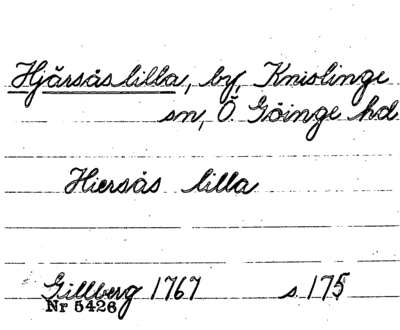 Hjärsås lilla, by, Knislinge
sn, Ö. Göinge hd
Hiersås lilla
Gillberg 1767 s 175
Nr 5426